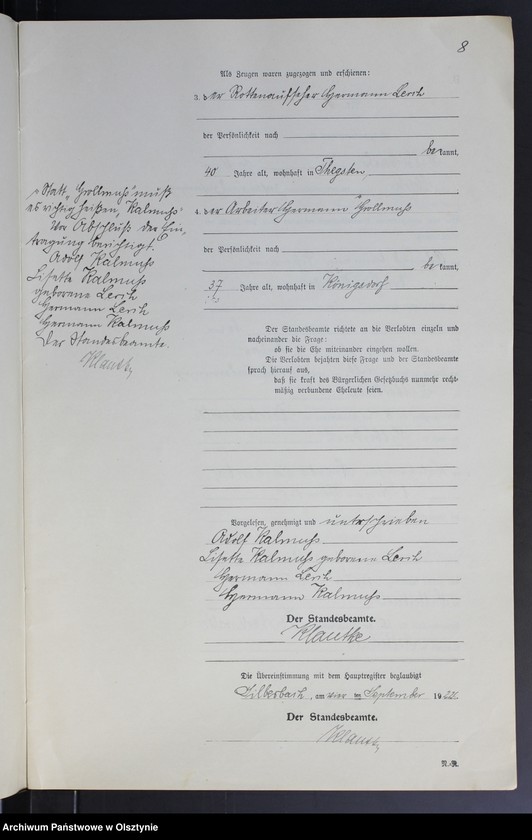 8
Als Zeugen waren zugezogen und erschienen:
3. der Rottenaufseher Hermann Lersch
der Persönlichkeit nach
bekannt,
40 Jahre alt, wohnhaft in Thegsten
4. der Arbeiter Hermann "Grollmuss
der Persönlichkeit nach
bekannt,
37 Jahre alt, wohnhaft in Königsdorf
Der Standesbeamte richtete an die Verlobten einzeln und
nacheinander die Frage:
ob sie die Ehe miteinander eingehen wollen.
Die Verlobten bejahten diese Frage und der Standesbeamte
sprach hierauf aus,
daß sie kraft des Bürgerlichen Gesetzbuchs nunmehr recht-
mäßig verbundene Eheleute seien.
Vorgelesen, genehmigt und unterschrieben
Adolf Kalmuss
Lisette Kalmuss geborene Lersch
Hermann Lersch
Hermann Kalmuss
Der Standesbeamte.
Klautke
Die Übereinstimmung mit dem Hauptregister beglaubigt
Silberbach, am vier ten September 1922
Der Standesbeamte.
Klautke
R.-R.
"Statt "Grollmuss" muß
es richtig heißen "Kalmuss"
Vor Abschluß der Ein-
tragung berichtigt.
Adolf Kalmuss
Lisette Kalmuss
geborene Lersch
Hermann Lersch
Hermann Kalmuss
Der Standesbeamte.
Klautke
Archiwum Państwowe w Olsztynie